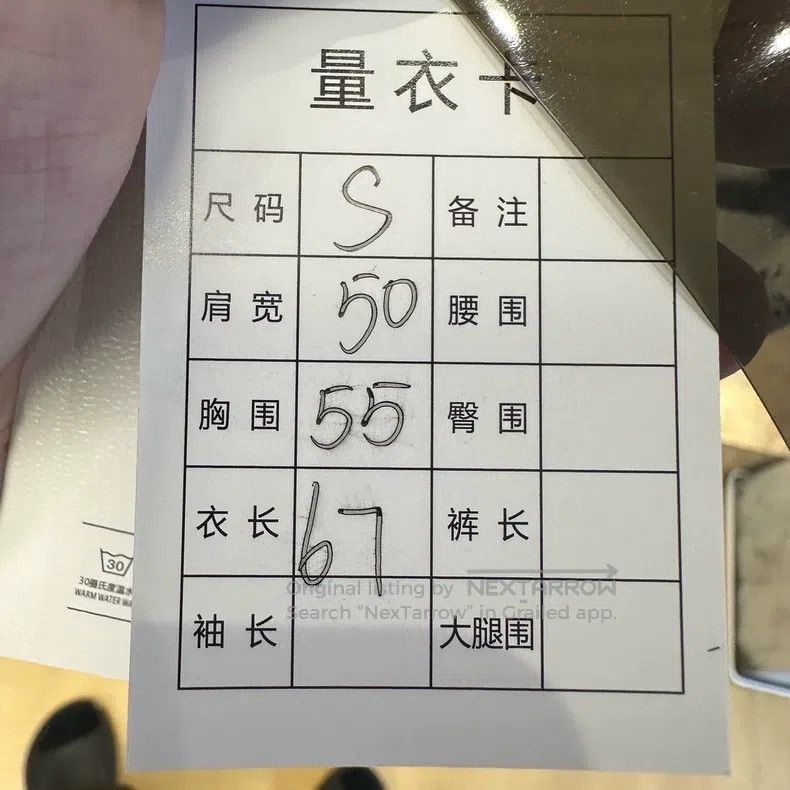 量衣卡
尺码 S 备注
肩宽 50 腰围
胸围 55 臀围
衣长 67 裤长
袖长 大腿围
30
30摄氏度温水
WARM WATER WA
Original listing by NEXTARROW
Search "NexTarrow" in Grailed app.